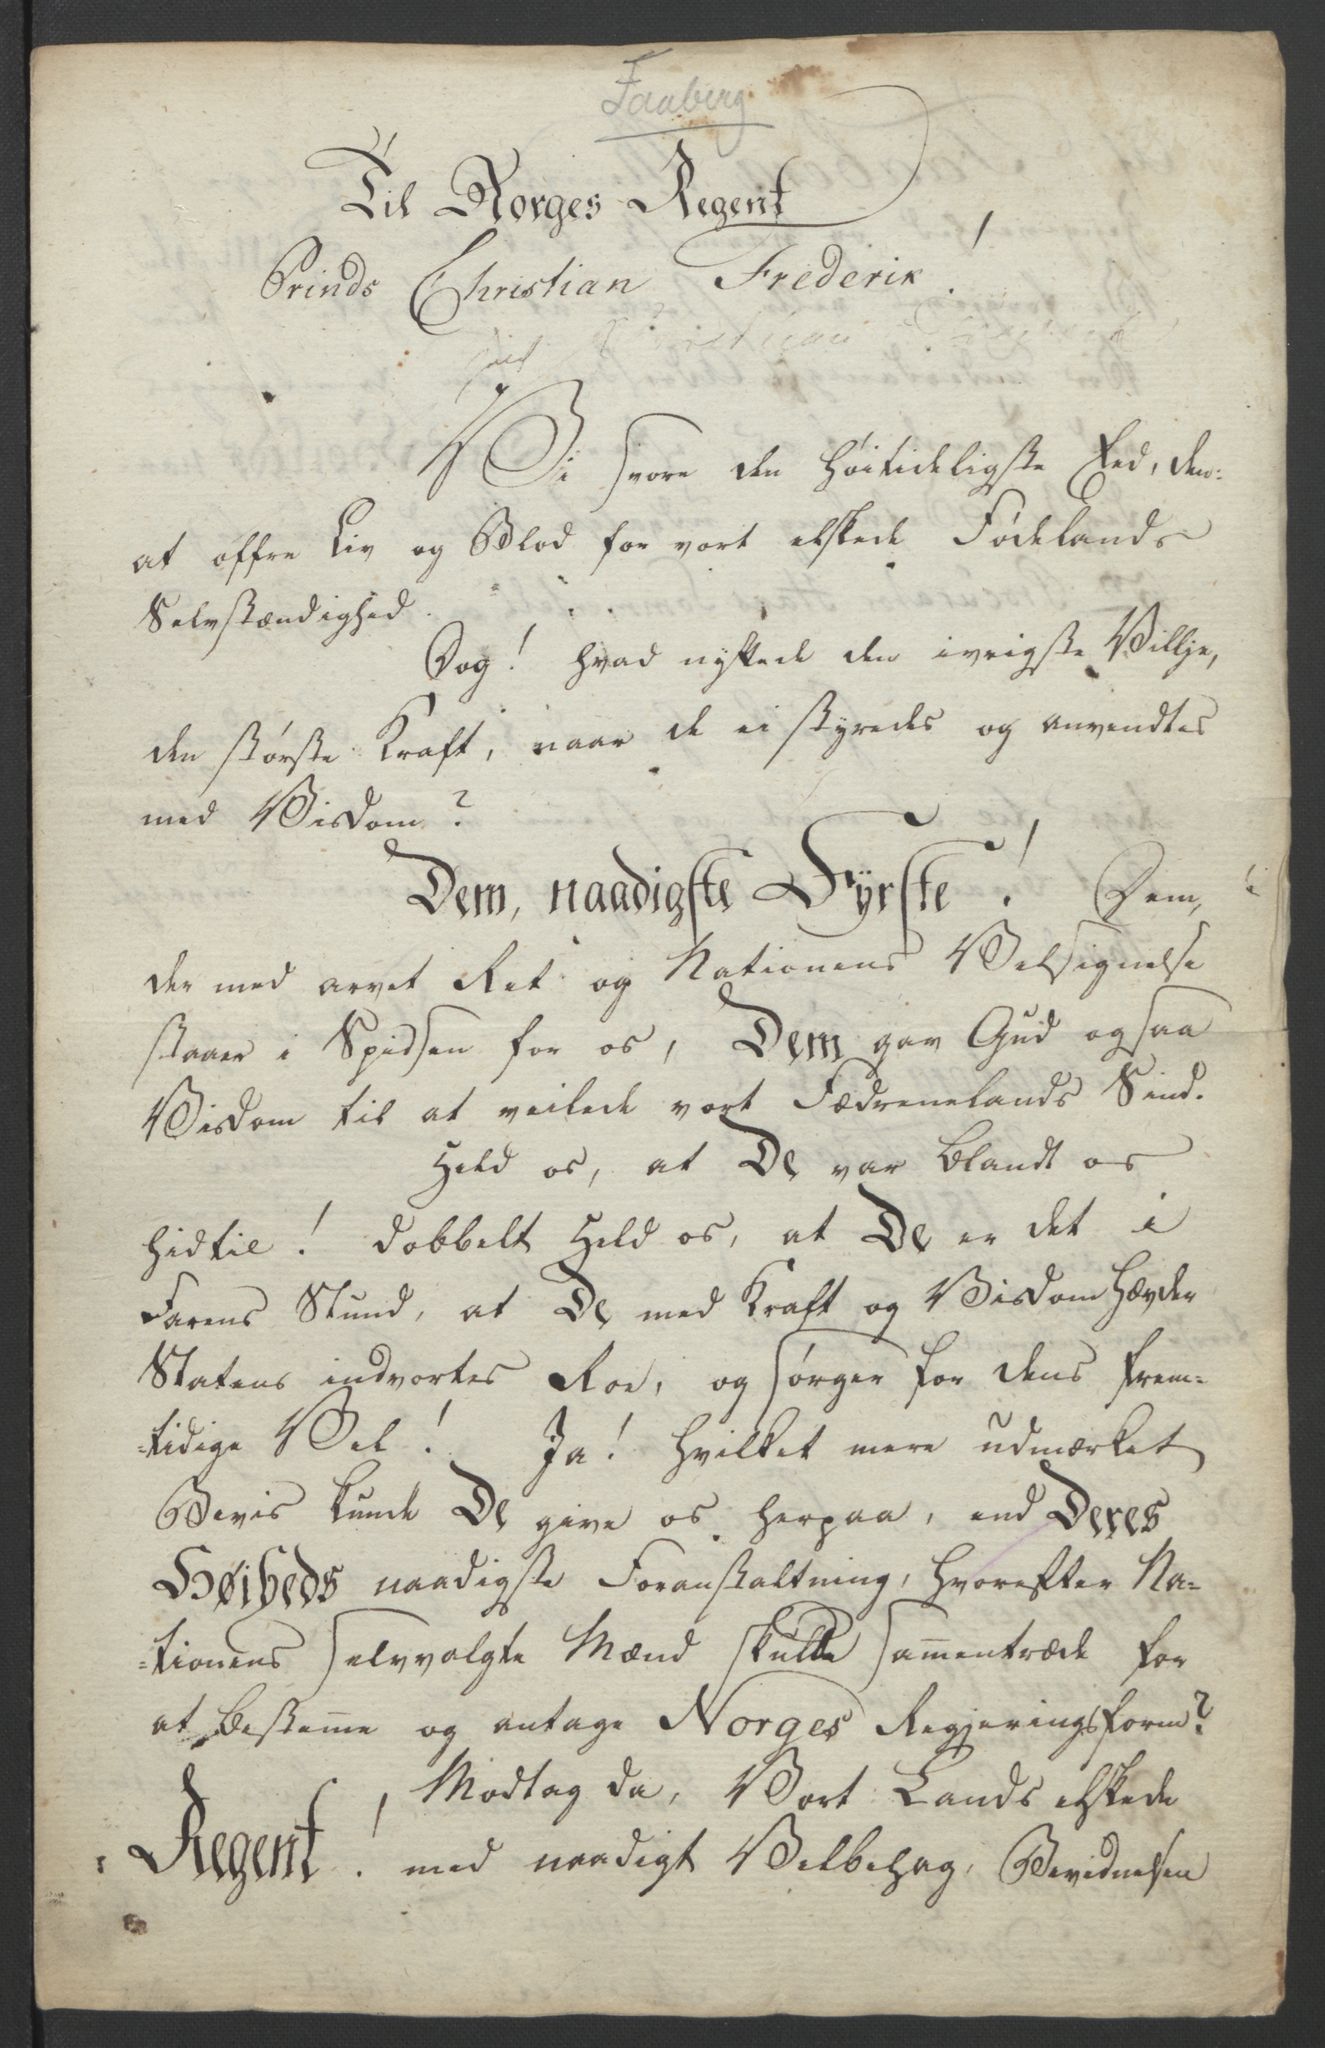 Faaberg
Til Norges Regent
Prinds Christian Frederik!
Vi svore den høitideligste Eed, den:
at offre Liv og Blod for vort elskede Fødelands
Selvstændighed.
Dog! hvad nyttede den ivrigste Villje,
den største Kraft, naar de ei styredes og anvendtes
med Viisdom?
Dem, naadigste Fyrste! Dem,
der med arvet Ret og Nationens Velsignelse
staaer i Spidsen for os, Dem gav Gud ogsaa
Viisdom til at veilede vort Fædrenelands Sind.
Held os, at De var blandt os
hidtil! dobbelt Held os, at De er det i
Farens Stund, at De med Kraft og Viisdom hævder
Statens indvortes Roe, og sørger for dens frem-
-tidige Vel! Ja! hvilket mere udmærket
Beviis kunde De give os herpaa, end Deres
Høiheds naadigste Foranstaltning, hvorefter Na-
-tionens selvvalgte Mænd skulle sam̅entræde for
at bestem̅e og antage Norges Regjeringsform?
Modtag da, Vort Lands elskede
Regent! med naadigt Velbehag, Bevidnelsen